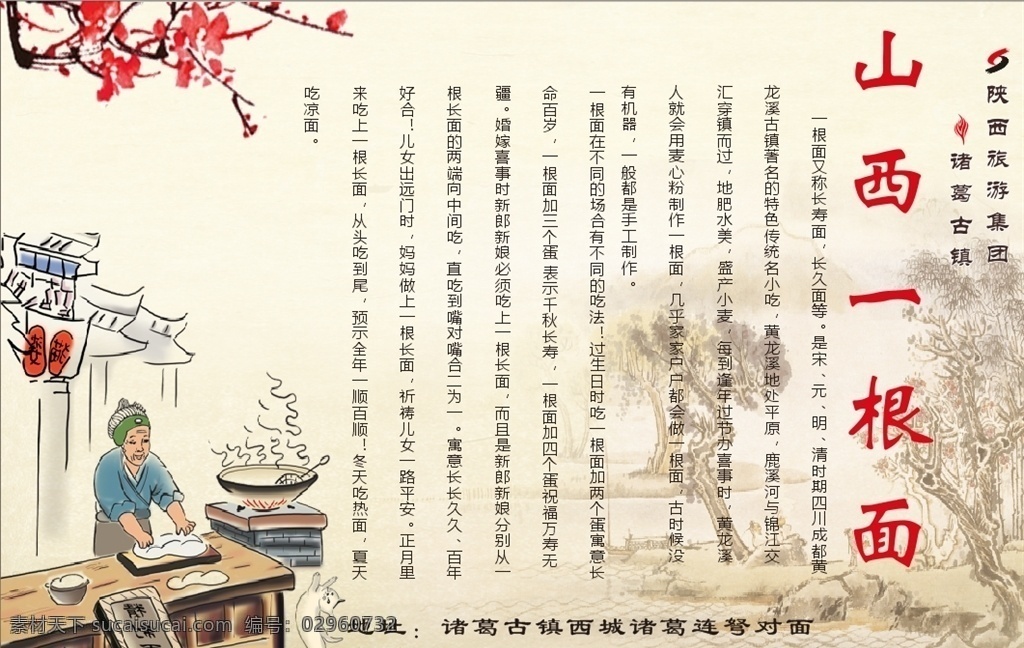 陕西旅游集团
诸葛古镇
山西一根面
一根面又称长寿面，长久面等。是宋、元、明、清时期四川成都黄
龙溪古镇著名的特色传统名小吃，黄龙溪地处平原，鹿溪河与锦江交
汇穿镇而过，地肥水美，盛产小麦，每到逢年过节办喜事时，黄龙溪
人就会用麦心粉制作一根面，几乎家家户户都会做一根面，古时候没
有机器，一般都是手工制作。
一根面在不同的场合有不同的吃法！过生日时吃一根面加两个蛋寓意长
命百岁，一根面加三个蛋 表示千秋长寿，一根面加四个蛋祝福万寿无
疆。婚嫁喜事时新郎新娘必须吃上一根长面，而且是新郎新娘分别从一
根长面的两端向中间吃，直吃到嘴对嘴合二为一。寓意长长久久、百年
好合！儿女出远门时，妈妈做上一根长面，祈祷儿女一路平安。正月里
来吃上一根长面，从头吃到尾，预示全年一顺百顺！冬天吃热面，夏天
吃凉面。
地址：诸葛古镇西城诸葛连弩对面
素材天下 sucaisucai.com 编号：02960732